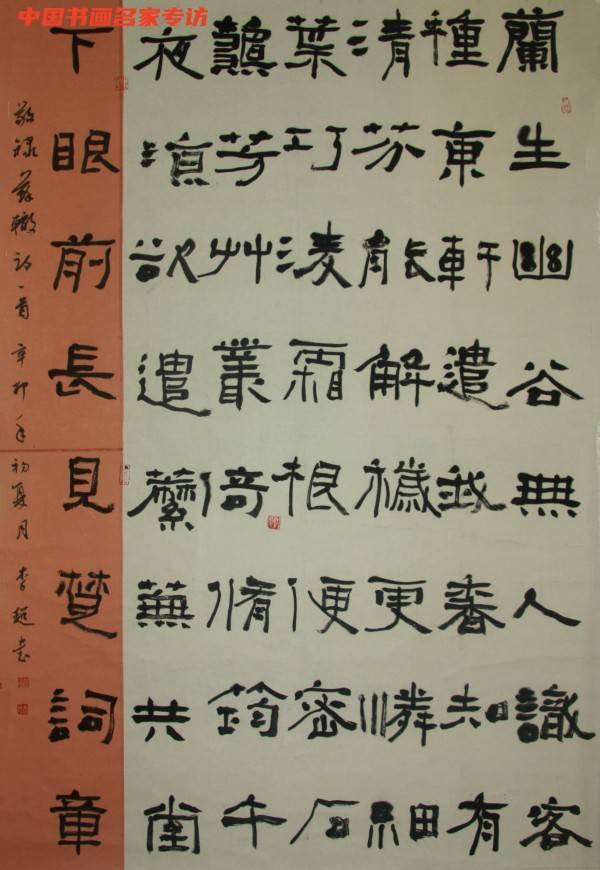 中国书画名家专访
蘭生幽谷無人識客
種東軒遺我香知有
清芬能解穢更憐細
葉巧淩霜根便密石
龝芳艸叢倚脩筠午
夜涼欲遣蘼蕪共堂
下眼前長見楚詞章
敬録蘇轍詩一首 辛卯年初夏月 李超书